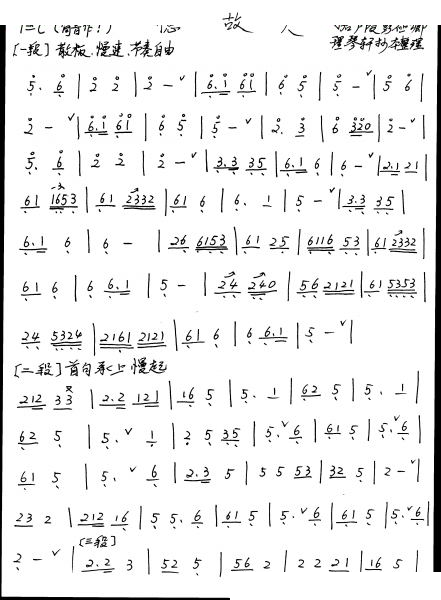 故人
[一段] 散板、慢速、节奏自由
5. 6 | 2 2 | 2 - ∨ | 6.1 61 | 6 5 | 5 - ∨ | 5 6 |
2 - ∨ | 6.1 61 | 6 5 | 5 - ∨ | 2. 3 | 6 320 | 2 - ∨ |
5. 6 | 2 2 | 2 - ∨ | 3.3 35 | 6.1 6 | 6 - ∨ | 2.1 21 |
61 1653 | 61 2332 | 61 6 | 6. 1 | 5 - ∨ | 3.3 35 |
6.1 6 | 6 - | 26 6153 | 61 25 | 6116 53 | 61 2332 |
61 6 | 6 6.1 | 5 - | 24 240 | 56 2121 | 61 5353 |
24 5324 | 2161 2121 | 61 6 | 6 6.1 | 5 - ∨ |
[二段] 首句承上慢起
212 33 | 2.2 121 | 16 5 | 5. 1 | 62 5 | 5. 1 |
62 5 | 5. ∨ 1 | 2 5 35 | 5. ∨ 6 | 61 5 | 5. ∨ 6 |
61 5 | 5. ∨ 6 | 2.3 5 | 5 5 53 | 32 5 | 2 - ∨ |
23 2 | 212 16 | 5 5. 6 | 61 5 | 5. ∨ 6 | 61 5 | 5. ∨ 6 |
[三段]
2 - ∨ | 2.2 3 | 52 5 | 56 2 | 2 2 21 | 16 5 |